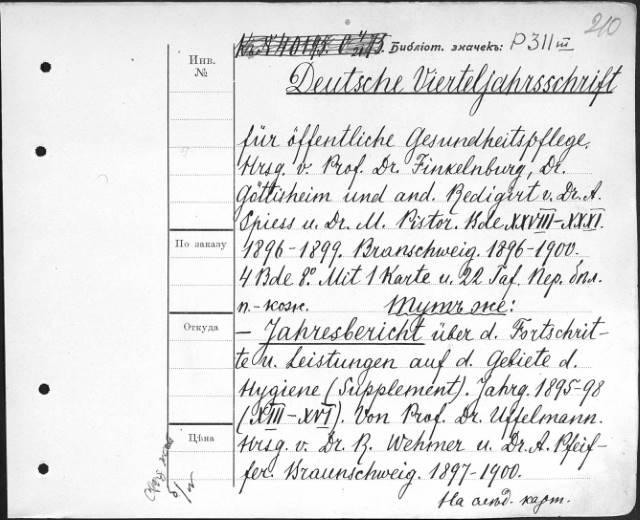 210
Библіот. значекъ: P 311 III
Инв. №
Deutsche Vierteljahrsschrift
für öffentliche Gesundheitspflege.
Hrsg. v. Prof. Dr. Finkelnburg, Dr.
Göttisheim und and. Redigirt v. Dr. A.
Spiess u. Dr. M. Pistor. Bde XXVIII–XXXI.
По заказу
1896-1899. Branschweig. 1896-1900.
4 Bde 8°. Mit 1 Karte u. 22 Taf. Пер. бѣл.
п.-кожи. Тутъ же:
Откуда
— Jahresbericht über d. Fortschrit-
te u. Leistungen auf d. Gebiete d.
Hygiene (Supplement). Jahrg. 1895-98
(XIII–XVI). Von Prof. Dr. Uffelmann.
Цѣна
Hrsg. v. Dr. R. Wehmer u. Dr. A. Pfeif-
fer. Braunschweig. 1897-1900.
На слѣд. карт.